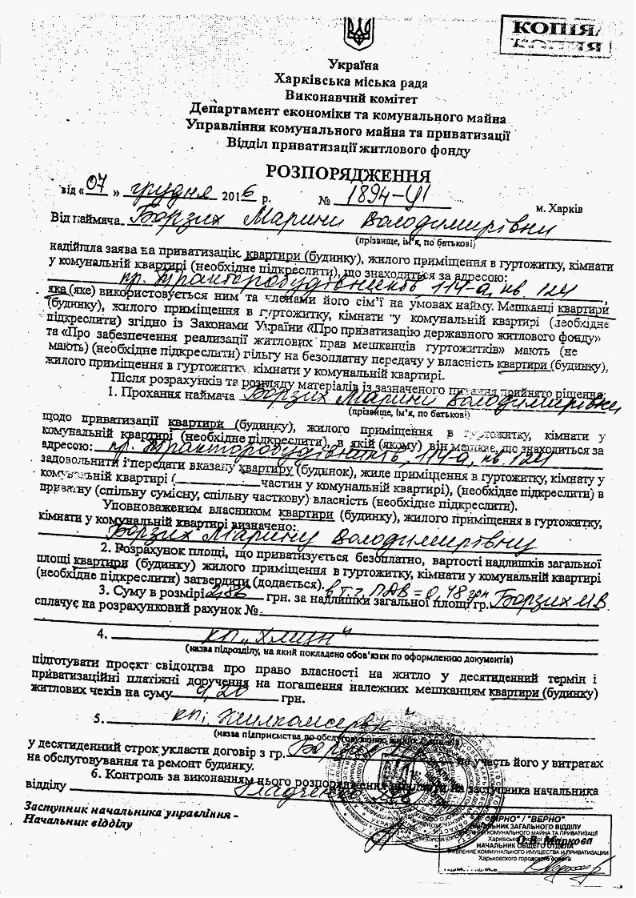 КОПІЯ
Україна
Харківська міська рада
Виконавчий комітет
Департамент економіки та комунального майна
Управління комунального майна та приватизації
Відділ приватизації житлового фонду
РОЗПОРЯДЖЕННЯ
від «07» грудня 2016 р. № 1894-УІ м. Харків
Від наймача Борзих Марини Володимирівни
(прізвище, ім'я, по батькові)
надійшла заява на приватизацію квартири (будинку), жилого приміщення в гуртожитку, кімнати
у комунальній квартирі (необхідне підкреслити), що знаходиться за адресою:
пр. Тракторобудівників 114-а, кв. 121
яка (яке) використовується ним та членами його сім'ї на умовах найму. Мешканці квартири
(будинку), жилого приміщення в гуртожитку, кімнати у комунальній квартирі (необхідне
підкреслити) згідно із Законами України «Про приватизацію державного житлового фонду»
та «Про забезпечення реалізації житлових прав мешканців гуртожитків» мають (не
мають) (необхідне підкреслити) пільгу на безоплатну передачу у власність квартири (будинку),
жилого приміщення в гуртожитку, кімнати у комунальній квартирі.
Після розрахунків та розгляду матеріалів із зазначеного питання прийнято рішення:
1. Прохання наймача Борзих Марини Володимирівни
(прізвище, ім'я, по батькові)
щодо приватизації квартири (будинку), жилого приміщення в гуртожитку, кімнати у
комунальній квартирі (необхідне підкреслити), в якій (якому) він мешкає, що знаходиться за
адресою: пр. Тракторобудівників, 114-а, кв. 121
задовольнити і передати вказану квартиру (будинок), жиле приміщення в гуртожитку, кімнату у
комунальній квартирі (частин у комунальній квартирі), (необхідне підкреслити) в
приватну (спільну сумісну, спільну часткову) власність (необхідне підкреслити).
Уповноваженим власником квартири (будинку), жилого приміщення в гуртожитку,
кімнати у комунальній квартирі визначено:
Борзих Марину Володимирівну
2. Розрахунок площі, що приватизується безоплатно, вартості надлишків загальної
площі квартири (будинку) жилого приміщення в гуртожитку, кімнати у комунальній квартирі
(необхідне підкреслити) затвердити (додається).
3. Суму в розмірі 2,86 грн. за надлишки загальної площі гр. Борзих М.В.
в т.ч. ПДВ = 0,48 грн
сплачує на розрахунковий рахунок №
4. КП „
(назва підрозділу, на який покладено обов'язки по оформленню документів)
підготувати проєкт свідоцтва про право власності на житло у десятиденний термін і
приватизаційні платіжні доручення на погашення належних мешканцям квартири (будинку)
житлових чеків на суму грн.
5. КП „Жилкомсервіс
(назва підприємства по обслуговуванню
у десятиденний строк укласти договір з гр. участь його у витратах
на обслуговування та ремонт будинку.
6. Контроль за виконанням цього розпорядження на заступника начальника
відділу
Заступник начальника управління -
Начальник відділу
"ВІРНО" / "ВЕРНО"
НАЧАЛЬНИК ЗАГАЛЬНОГО ВІДДІЛУ
УПРАВЛІННЯ КОМУНАЛЬНОГО МАЙНА ТА ПРИВАТИЗАЦІЇ
НАЧАЛЬНИК ОБЩЕГО ОТДЕЛА
УПРАВЛЕНИЕ КОММУНАЛЬНОГО ИМУЩЕСТВА И ПРИВАТИЗАЦИИ
Харьковского городского совета
Маркова